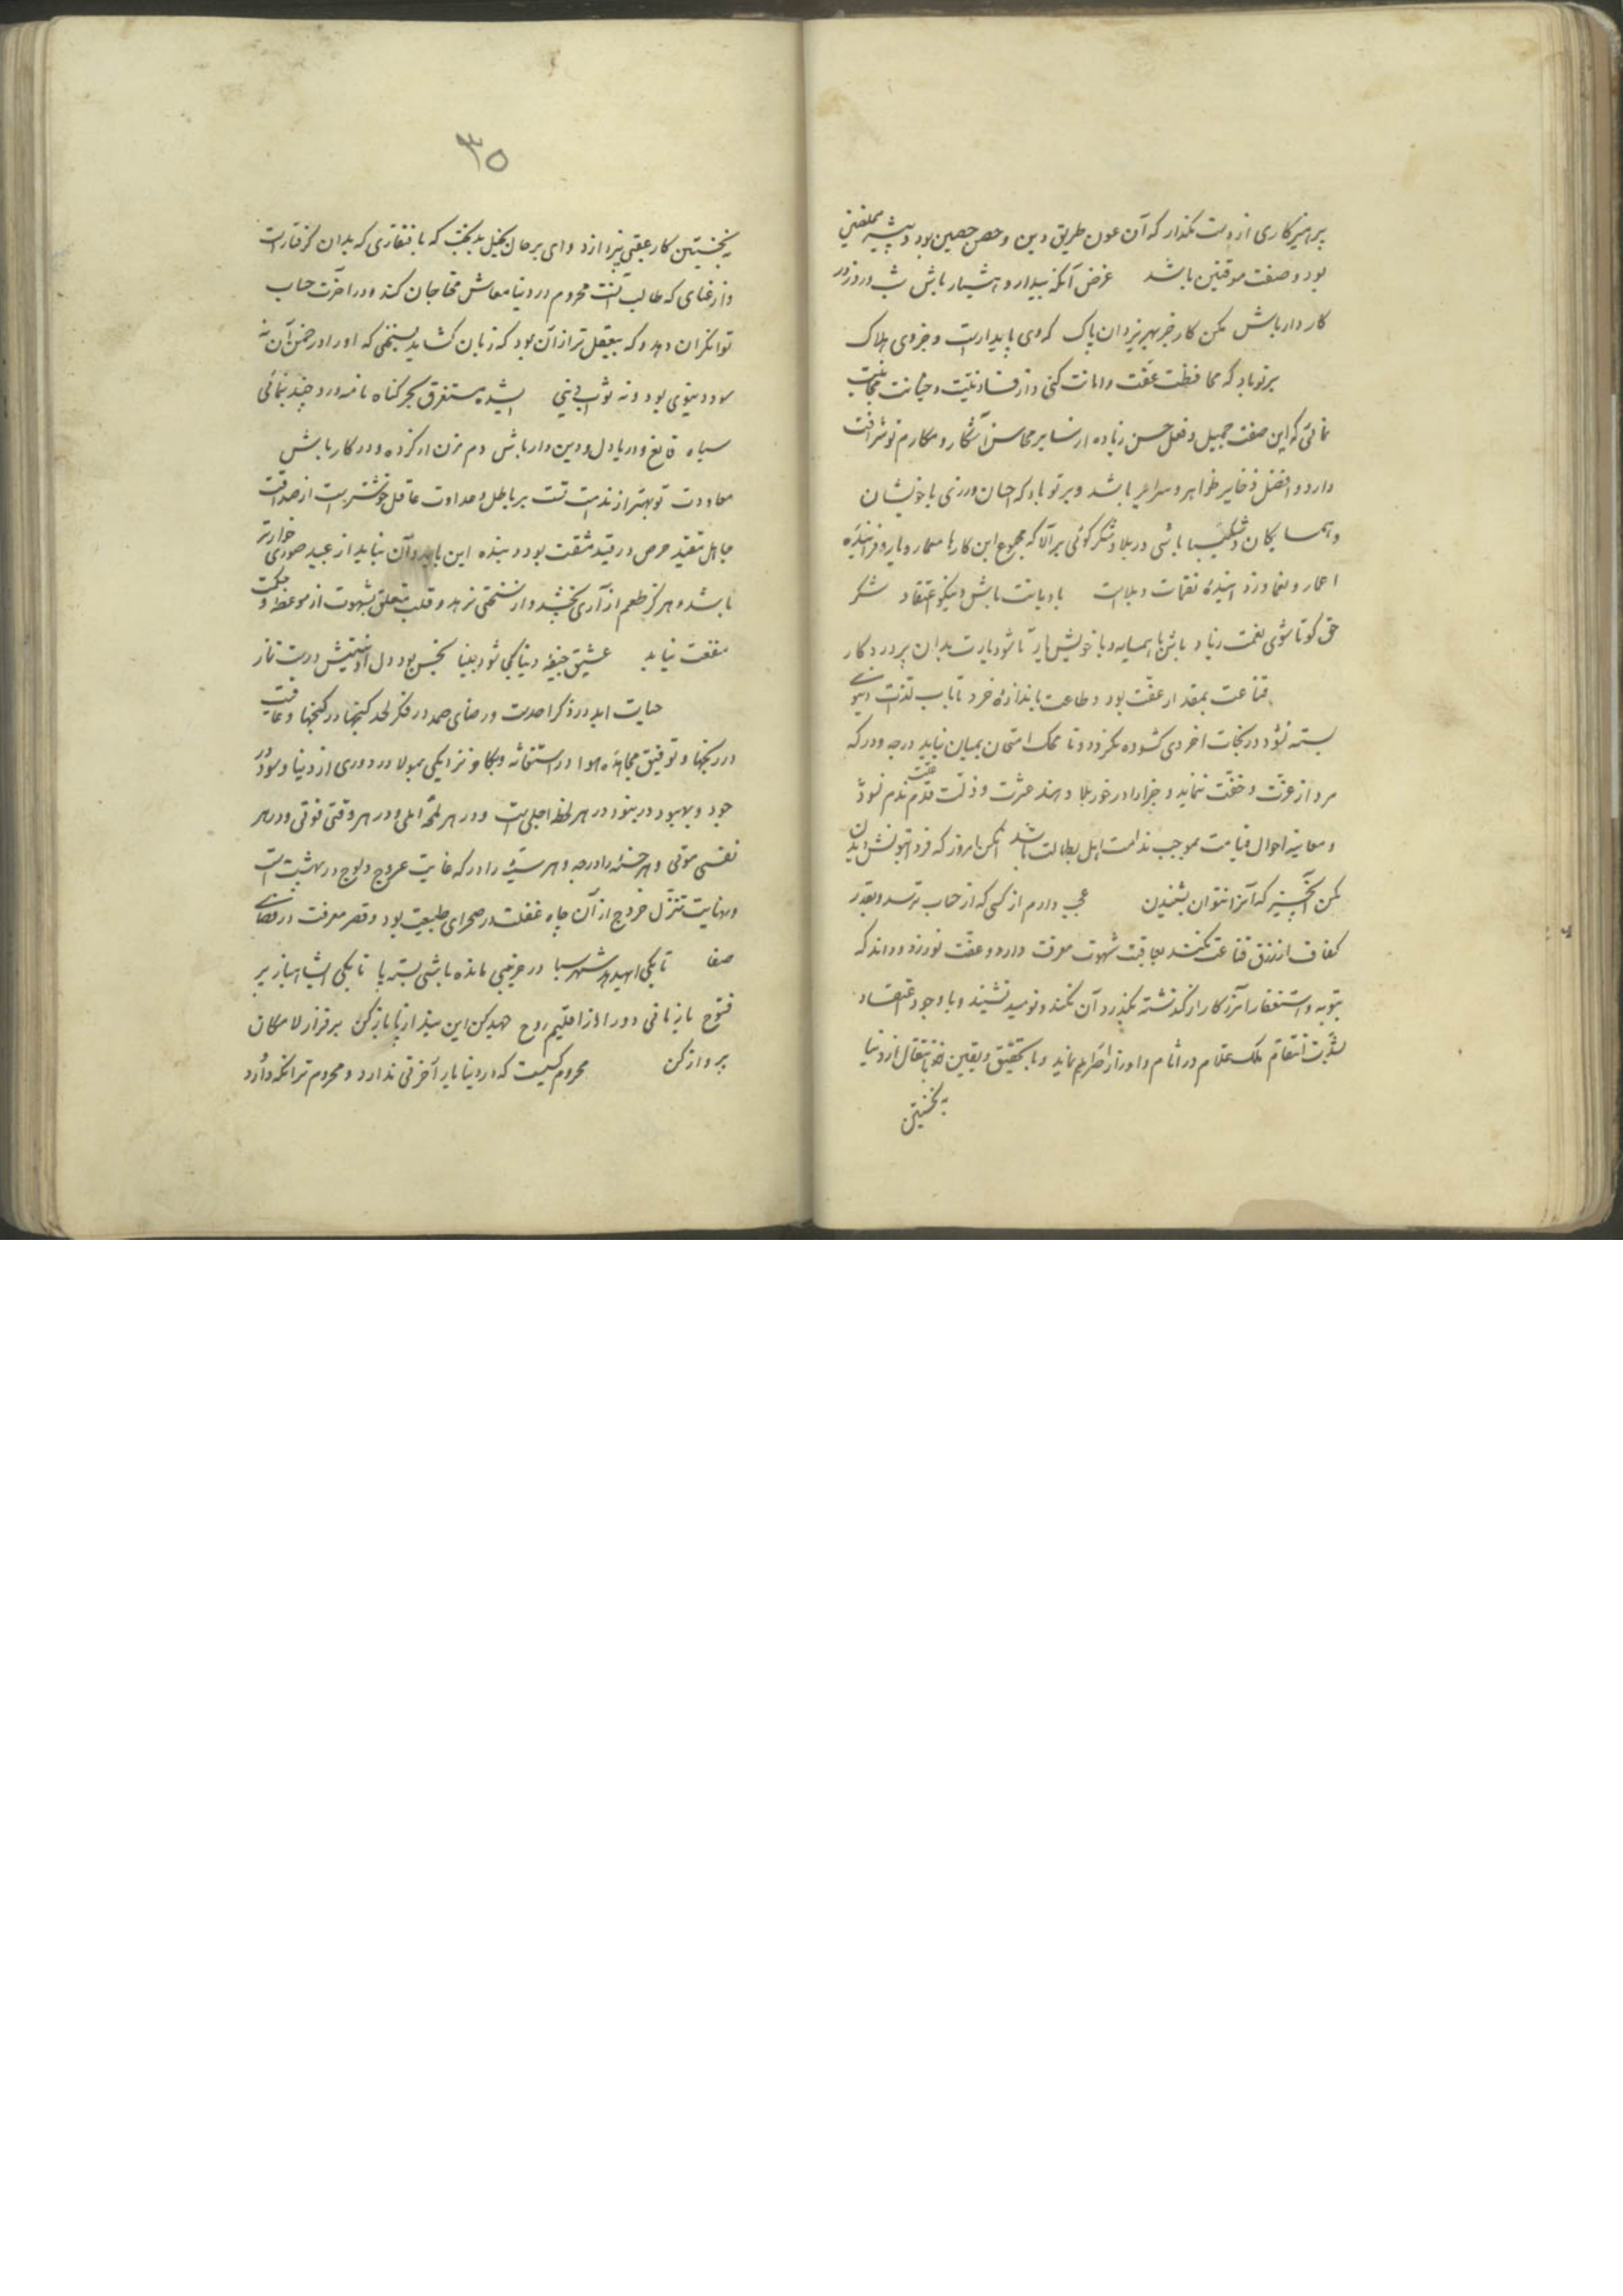 پرهیزکاری از دست مگذار که آن عون طریق دین و حصن حصین بود و پیشه مخلصین
بود و صفت موقنین باشد غرض آنکه بیدار و هشیار باش شب و روز در
کار دار باش مکن کار جز بهر یزدان پاک که وی پایدارست و جز وی هلاک
بر تو باد که محافظت عفت و امانت کنی و از فساد نیت و خیانت مجانبت
نمائی که این صفت جمیل و فعل حسن زیاده از سایر محاسن آشکار و مکارم تو شرافت
دارد و افضل ذخایر ظواهر و سرایر باشد و بر تو باد که احسان ورزی با خویشان
و همسایکان و شکیبا باشی در بلا و شکر کوئی بر آلا که مجموع این کارها معمار دیار و فزاینده
اعمار و نعما و زداینده نقمات و بلاست با دیانت باش و نیکو اعتقاد شکر
حق کو تا شوی نعمت زیاد باش با همسایه و با خویش یار تا شود یارت بدان پروردکار
قناعت بمقدار عفت بود و طاعت باندازه خرد تا باب لذت دنیوی
بسته نشود در نجات اخروی کشوده نکردد و تا محک امتحان بمیان نیاید درجه و درکه
مرد از عزت و خفت ننماید و جزا را در خور بلا دهند عثرت و ذلت قدم ندم نبود
و معاینه احوال قیامت موجب ندامت اهل بطالت باشد مکن امروز که فردا نتوانش دیدن
مکن آنچیز که آنرا نتوان بشنیدن عجب دارم از کسی که از حساب ترسد و بقدر
کفاف از رزق قناعت نکند بعاقبت شهوت معرفت دارد و عفت نورزد و داند که
بتوبه و استغفار آنرا کار از کذشته بکذرد آن نکند و نومید نشیند و با وجود اعتقاد
بشدت انتقام ملک علام در آثام و اوزار اضرار نماید و با تحقیق و یقین انتقال از دنیا
به نخستین
۳۵
به نخستین کار عقبی نپردازد وای بر حال بخیل بدبخت که با فقاری که بدان کرفتارست
و از غنای که طالب آنست محروم در دنیا معاش محتاجان کند و در آخرت حساب
توانکران دهد و که بیعقل تر از آن بود که زبان کشاید بسخنی که او را در ضمن آن نه
سود دنیوی بود و نه ثواب دینی ای شده مستغرق بحر کناه نامه ورد چند نمائی
سیاه قانع و دریادل و دیندار باش دم مزن از کرده و در کار باش
معاودت تو بهتر از ندامت تست بر باطل و عداوت عاقل خوشترست از صداقت
جاهل مقید حرص در قید مشقت بود و بنده این باید و آن نباید از عبید صوری خوارتر
باشد و هرکز طعم از آزادی نچشد و از سختی نرهد و قلب متعلق بشهوت از موعظه و حکمت
منفعت نیابد عشیق جیفه دنیا کی شود بینا نجس بود دل او نیستش درست نماز
حیات ابد در ذکر احدست و رضای صمد در فکر لحد کنجها در کنجها و عافیت
در رنجها و توفیق مجاهده هوا در استغاثه و بکا و نزدیکی بمولا در دوری از دنیا و سود در
جود و بهبود در بنود در هر لحظه اجلی است و در هر لمحه املی و در هر وقتی فوتی و در هر
نفسی موتی و هر حسنه را درجه و هر سیئه را درکه غایت عروج ولوج در بهشت است
و نهایت تنزل خروج از آن چاه غفلت در صحرای طبیعت بود و قصر معرفت در فضای
صفا تا بکی ای هدهد شهر سبا در غریبی مانده باشی بسته پا تا بکی ای شاهباز پر
فتوح باز مانی دور از اقلیم روح جهد کن این بند از پا باز کن بر فراز لامکان
پرواز کن محروم کسیست که از دنیا یار آخرتی ندارد و محروم تر آنکه دارد